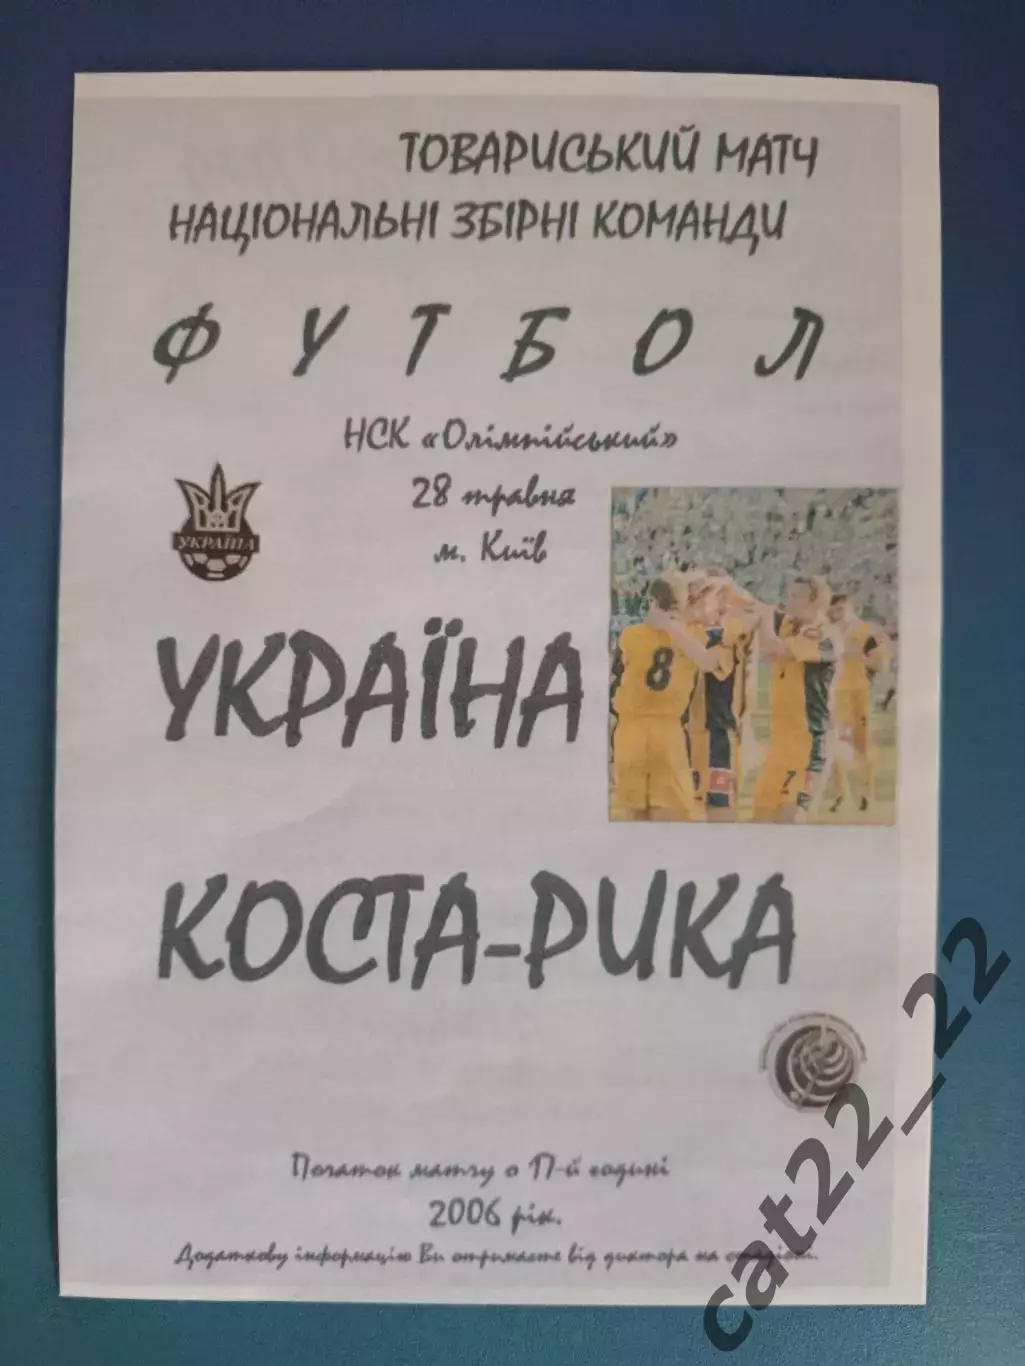 ТОВАРИСЬКИЙ МАТЧ
НАЦІОНАЛЬНІ ЗБІРНІ КОМАНДИ
ФУТБОЛ
НСК «Олімпійський»
28 травня
м. Київ
УКРАЇНА
8
7
УКРАЇНА
КОСТА-РИКА
Початок матчу о 17-й годині
2006 рік.
Додаткову інформацію Ви отримаєте від диктора на стадіоні.
cat22_22